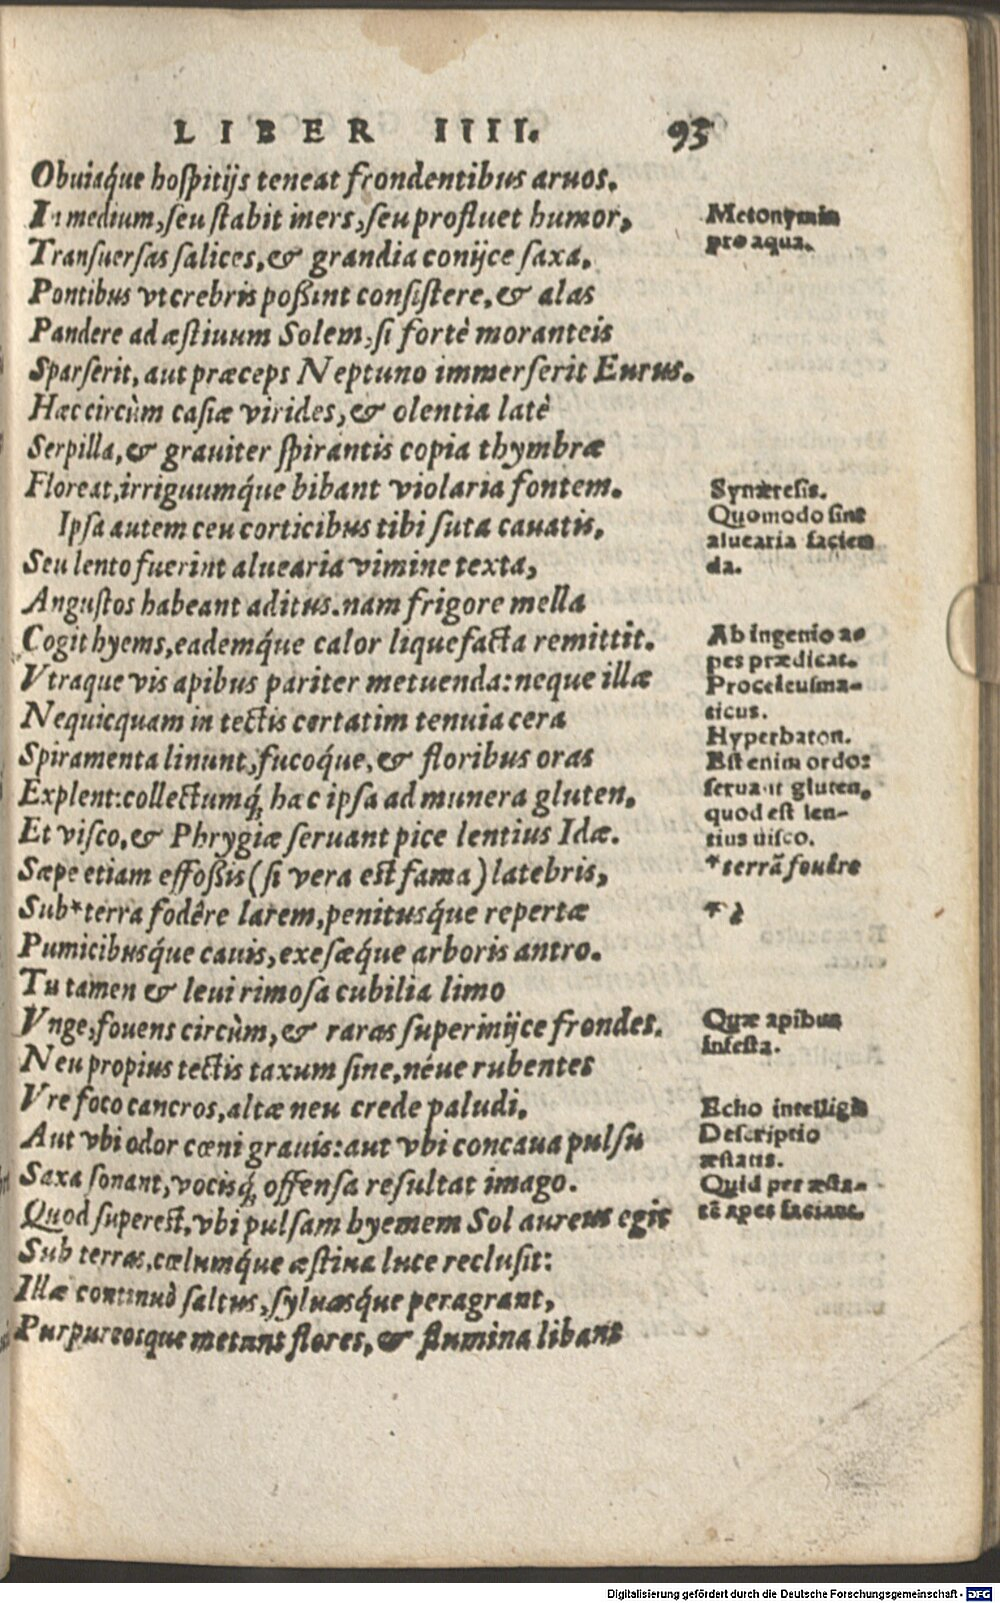 LIBER IIII. 95
Obuiáque hoſpitijs teneat frondentibus aruos.
In medium, ſeu ſtabit iners, ſeu profluet humor,
Tranſuerſas ſalices, & grandia conijce ſaxa,
Pontibus vt crebris poßint conſiſtere, & alas
Pandere ad æſtiuum Solem, ſi fortè moranteis
Sparſerit, aut præceps Neptuno immerſerit Eurus.
Hæc circùm caſiæ virides, & olentia latè
Serpilla, & grauiter ſpirantis copia thymbræ
Floreat, irriguumq́ue bibant violaria fontem.
Ipſa autem ceu corticibus tibi ſuta cauatis,
Seu lento fuerint aluearia vimine texta,
Anguſtos habeant aditus. nam frigore mella
Cogit hyems, eademq́ue calor liquefacta remittit.
Vtraque vis apibus pariter metuenda: neque illæ
Nequicquam in tectis certatim tenuia cera
Spiramenta linunt, fucoq́ue, & floribus oras
Explent: collectumq́; hæc ipſa ad munera gluten,
Et viſco, & Phrygiæ ſeruant pice lentius Idæ.
Sæpe etiam effoßis (ſi vera eſt fama) latebris,
Sub *terra fodêre larem, penitusq́ue repertæ
Pumicibusq́ue cauis, exeſæq́ue arboris antro.
Tu tamen & leui rimoſa cubilia limo
Vnge, fouens circùm, & raras ſuperinijce frondes.
Neu propius tectis taxum ſine, néue rubentes
Vre foco cancros, altæ neu crede paludi,
Aut vbi odor cœni grauis: aut vbi concaua pulſu
Saxa ſonant, vocisq́; offenſa reſultat imago.
Quod ſupereſt, vbi pulſam hyemem Sol aureus egit
Sub terras, cœlumq́ue æſtiua luce recluſit:
Illæ continuò ſaltus, ſyluasq́ue peragrant,
Purpureosque metunt flores, & flumina libant
Metonymia
pro aqua.
Synæreſis.
Quomodo ſint
aluearia facien
da.
Ab ingenio a-
pes prædicat.
Proceleuſma-
ticus.
Hyperbaton.
Eſt enim ordo:
ſeruant gluten,
quod eſt len-
tius uiſco.
*terrã fouêre
Quæ apibus
infeſta.
Echo intelligit
Deſcriptio
æſtatis.
Quid per æſta-
tẽ apes faciant.
Digitalisierung gefördert durch die Deutsche Forschungsgemeinschaft - DFG